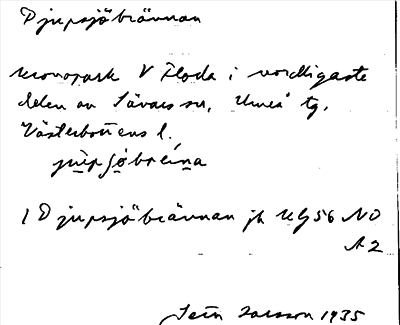 Djupsjöbrännan
Kronopark V Floda i nordligaste
delen av Sävars sn, Umeå tg,
Västerbottens l.
jüpsjöbrei̇na
1 Djupsjöbrännan jk Kg 56 NO
A2
Larsson 1935